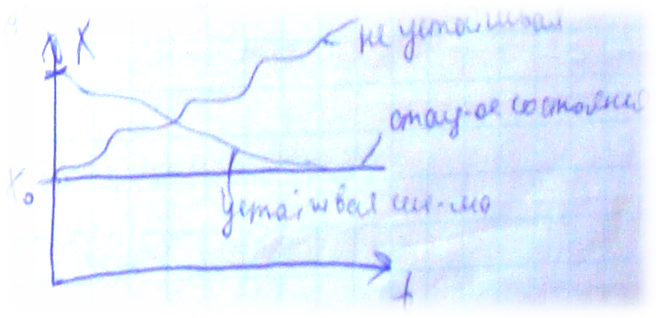 X
не устойчивая
стац-ое состояние
X₀
устойчивая сис-ма
t